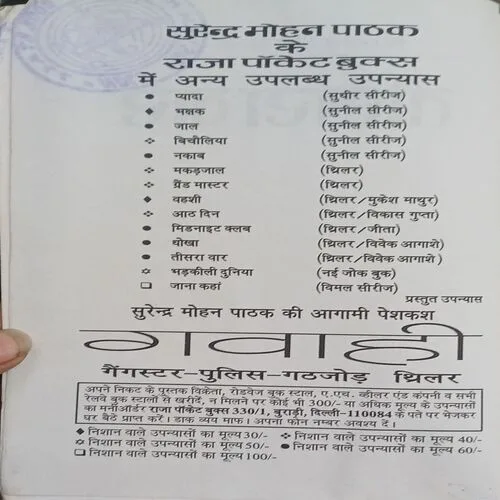 सुरेन्द्र मोहन पाठक
के
राजा पॉकेट बुक्स
में अन्य उपलब्ध उपन्यास
● प्यादा (सुधीर सीरीज)
◆ भक्षक (सुनील सीरीज)
● जाल (सुनील सीरीज)
❖ बिचौलिया (सुनील सीरीज)
● नकाब (सुनील सीरीज)
❖ मकड़जाल (थ्रिलर)
❖ ग्रैंड मास्टर (थ्रिलर)
◆ वहशी (थ्रिलर/मुकेश माथुर)
❖ आठ दिन (थ्रिलर/विकास गुप्ता)
● मिडनाइट क्लब (थ्रिलर/जीता)
● धोखा (थ्रिलर/विवेक आगाशे)
● तीसरा वार (थ्रिलर/विवेक आगाशे)
✡ भड़कीली दुनिया (नई जोक बुक)
❑ जाना कहां (विमल सीरीज)
प्रस्तुत उपन्यास
सुरेन्द्र मोहन पाठक की आगामी पेशकश
गवाही
गैंगस्टर-पुलिस-गठजोड़ थ्रिलर
अपने निकट के पुस्तक विक्रेता, रोडवेज बुक स्टाल, ए.एच. व्हीलर एंड कंपनी व सभी
रेलवे बुक स्टालों से खरीदें, न मिलने पर कोई भी 300/- या अधिक मूल्य के उपन्यासों
का मनीऑर्डर राजा पॉकेट बुक्स 330/1, बुराड़ी, दिल्ली-110084 के पते पर भेजकर
घर बैठे प्राप्त करें। डाक व्यय माफ। अपना फोन नम्बर अवश्य दें।
◆ निशान वाले उपन्यासों का मूल्य 30/- ❖ निशान वाले उपन्यासों का मूल्य 40/-
✡ निशान वाले उपन्यासों का मूल्य 50/- ● निशान वाले उपन्यासों का मूल्य 60/-
❑ निशान वाले उपन्यासों का मूल्य 100/-